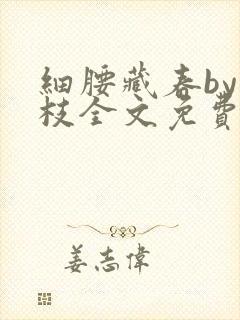 細腰藏春by
枝全文免費
姜志偉